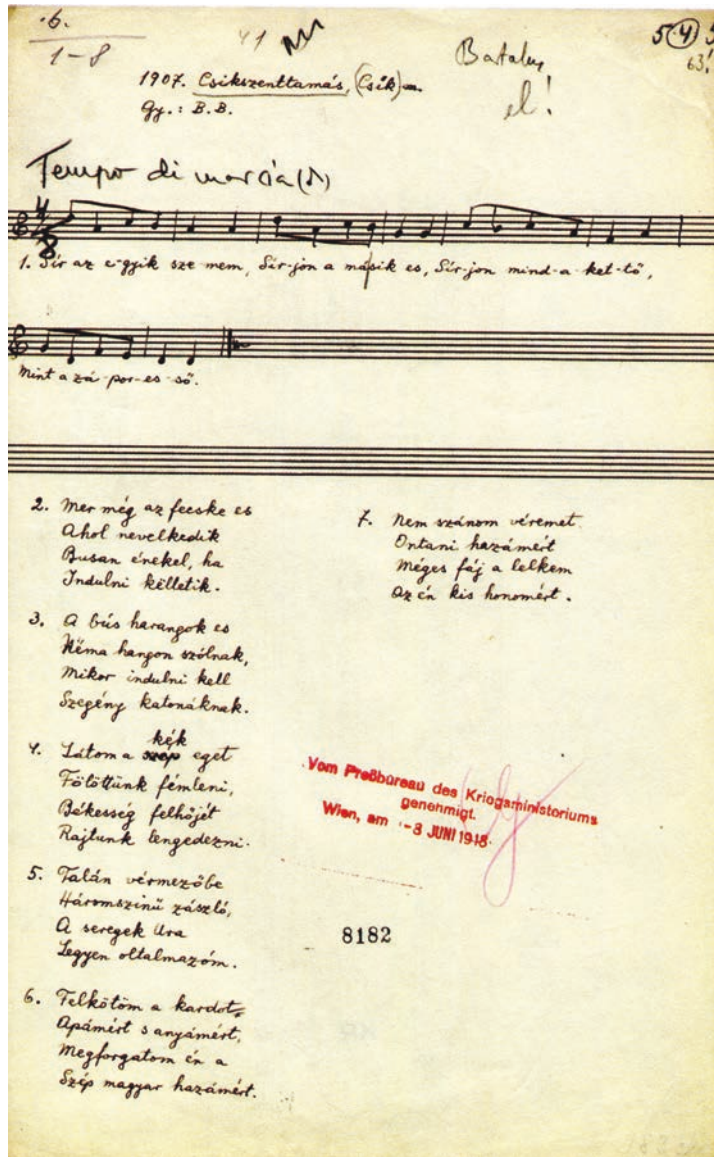 .6.
1-8
41
Bartalus
el!
5 4 5
63!
1907. Csikszenttamás, (Csík) m.
Gy.: B.B.
Tempo di marcia (♪)
4
8
1. Sír az e-gyik sze mem, Sír-jon a másik es, Sír-jon mind-a-ket-tő,
Mint a zá-por-es-ső.
2. Mer még az fecske es
Ahol nevelkedik
Busan énekel, ha
Indulni këlletik.
3. A bús harangok es
Néma hangon szólnak,
Mikor indulni kell
Szegény katonáknak.
4. Látom a szép kék eget
Fölöttünk fémleni,
Békesség felhőjét
Rajtunk lengedezni.
5. Talán vérmezőbe
Háromszinű zászló,
A seregek Ura
Legyen oltalmazóm.
6. Felkötöm a kardot
Apámért s anyámért,
Megforgatom én a
Szép magyar hazámért.
7. Nem szánom véremet
Ontani hazámért
Méges fáj a lelkem
Az én kis honomért.
Vom Preßbureau des Kriegsministeriums
genehmigt.
Wien, am -3 JUNI 1918
8182